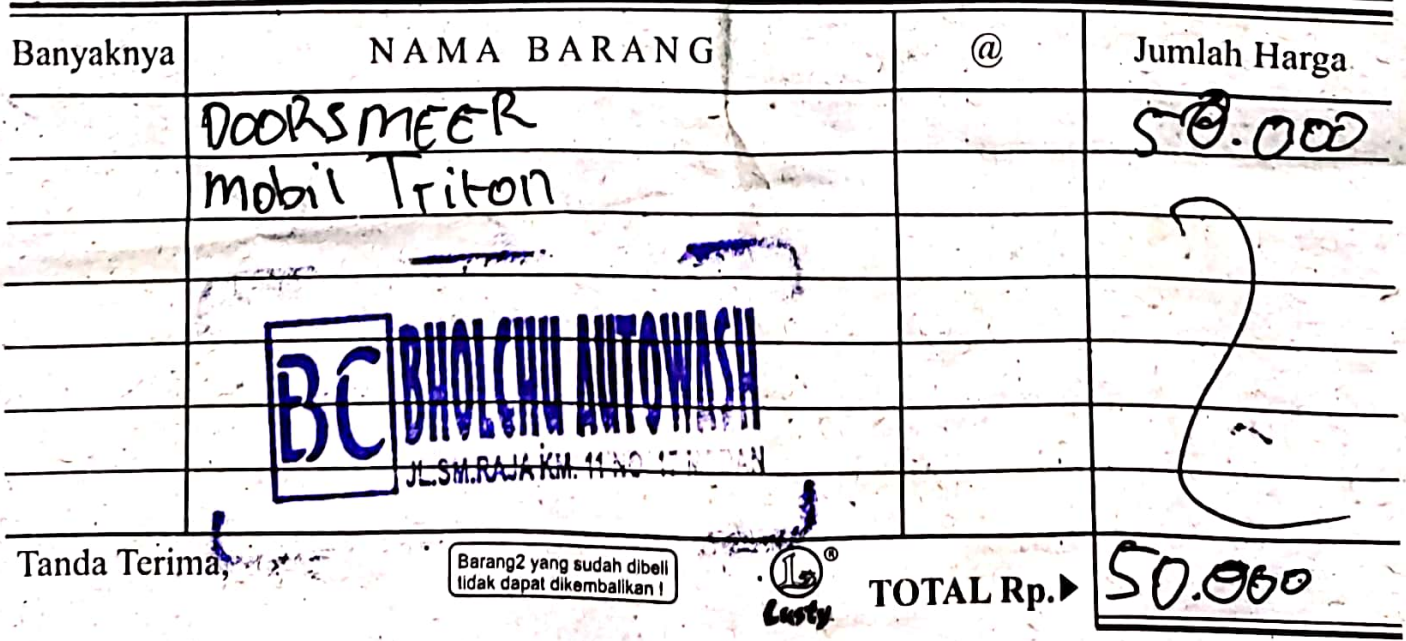 Banyaknya NAMA BARANG @ Jumlah Harga
DOORSMEER 50.000
Mobil Triton
BC BHOLCHU AUTOWASH
JL.SM.RAJA KM. 11 NO
Tanda Terima,
Barang2 yang sudah dibeli
tidak dapat dikembalikan !
®
Lusty
TOTAL Rp. 50.000